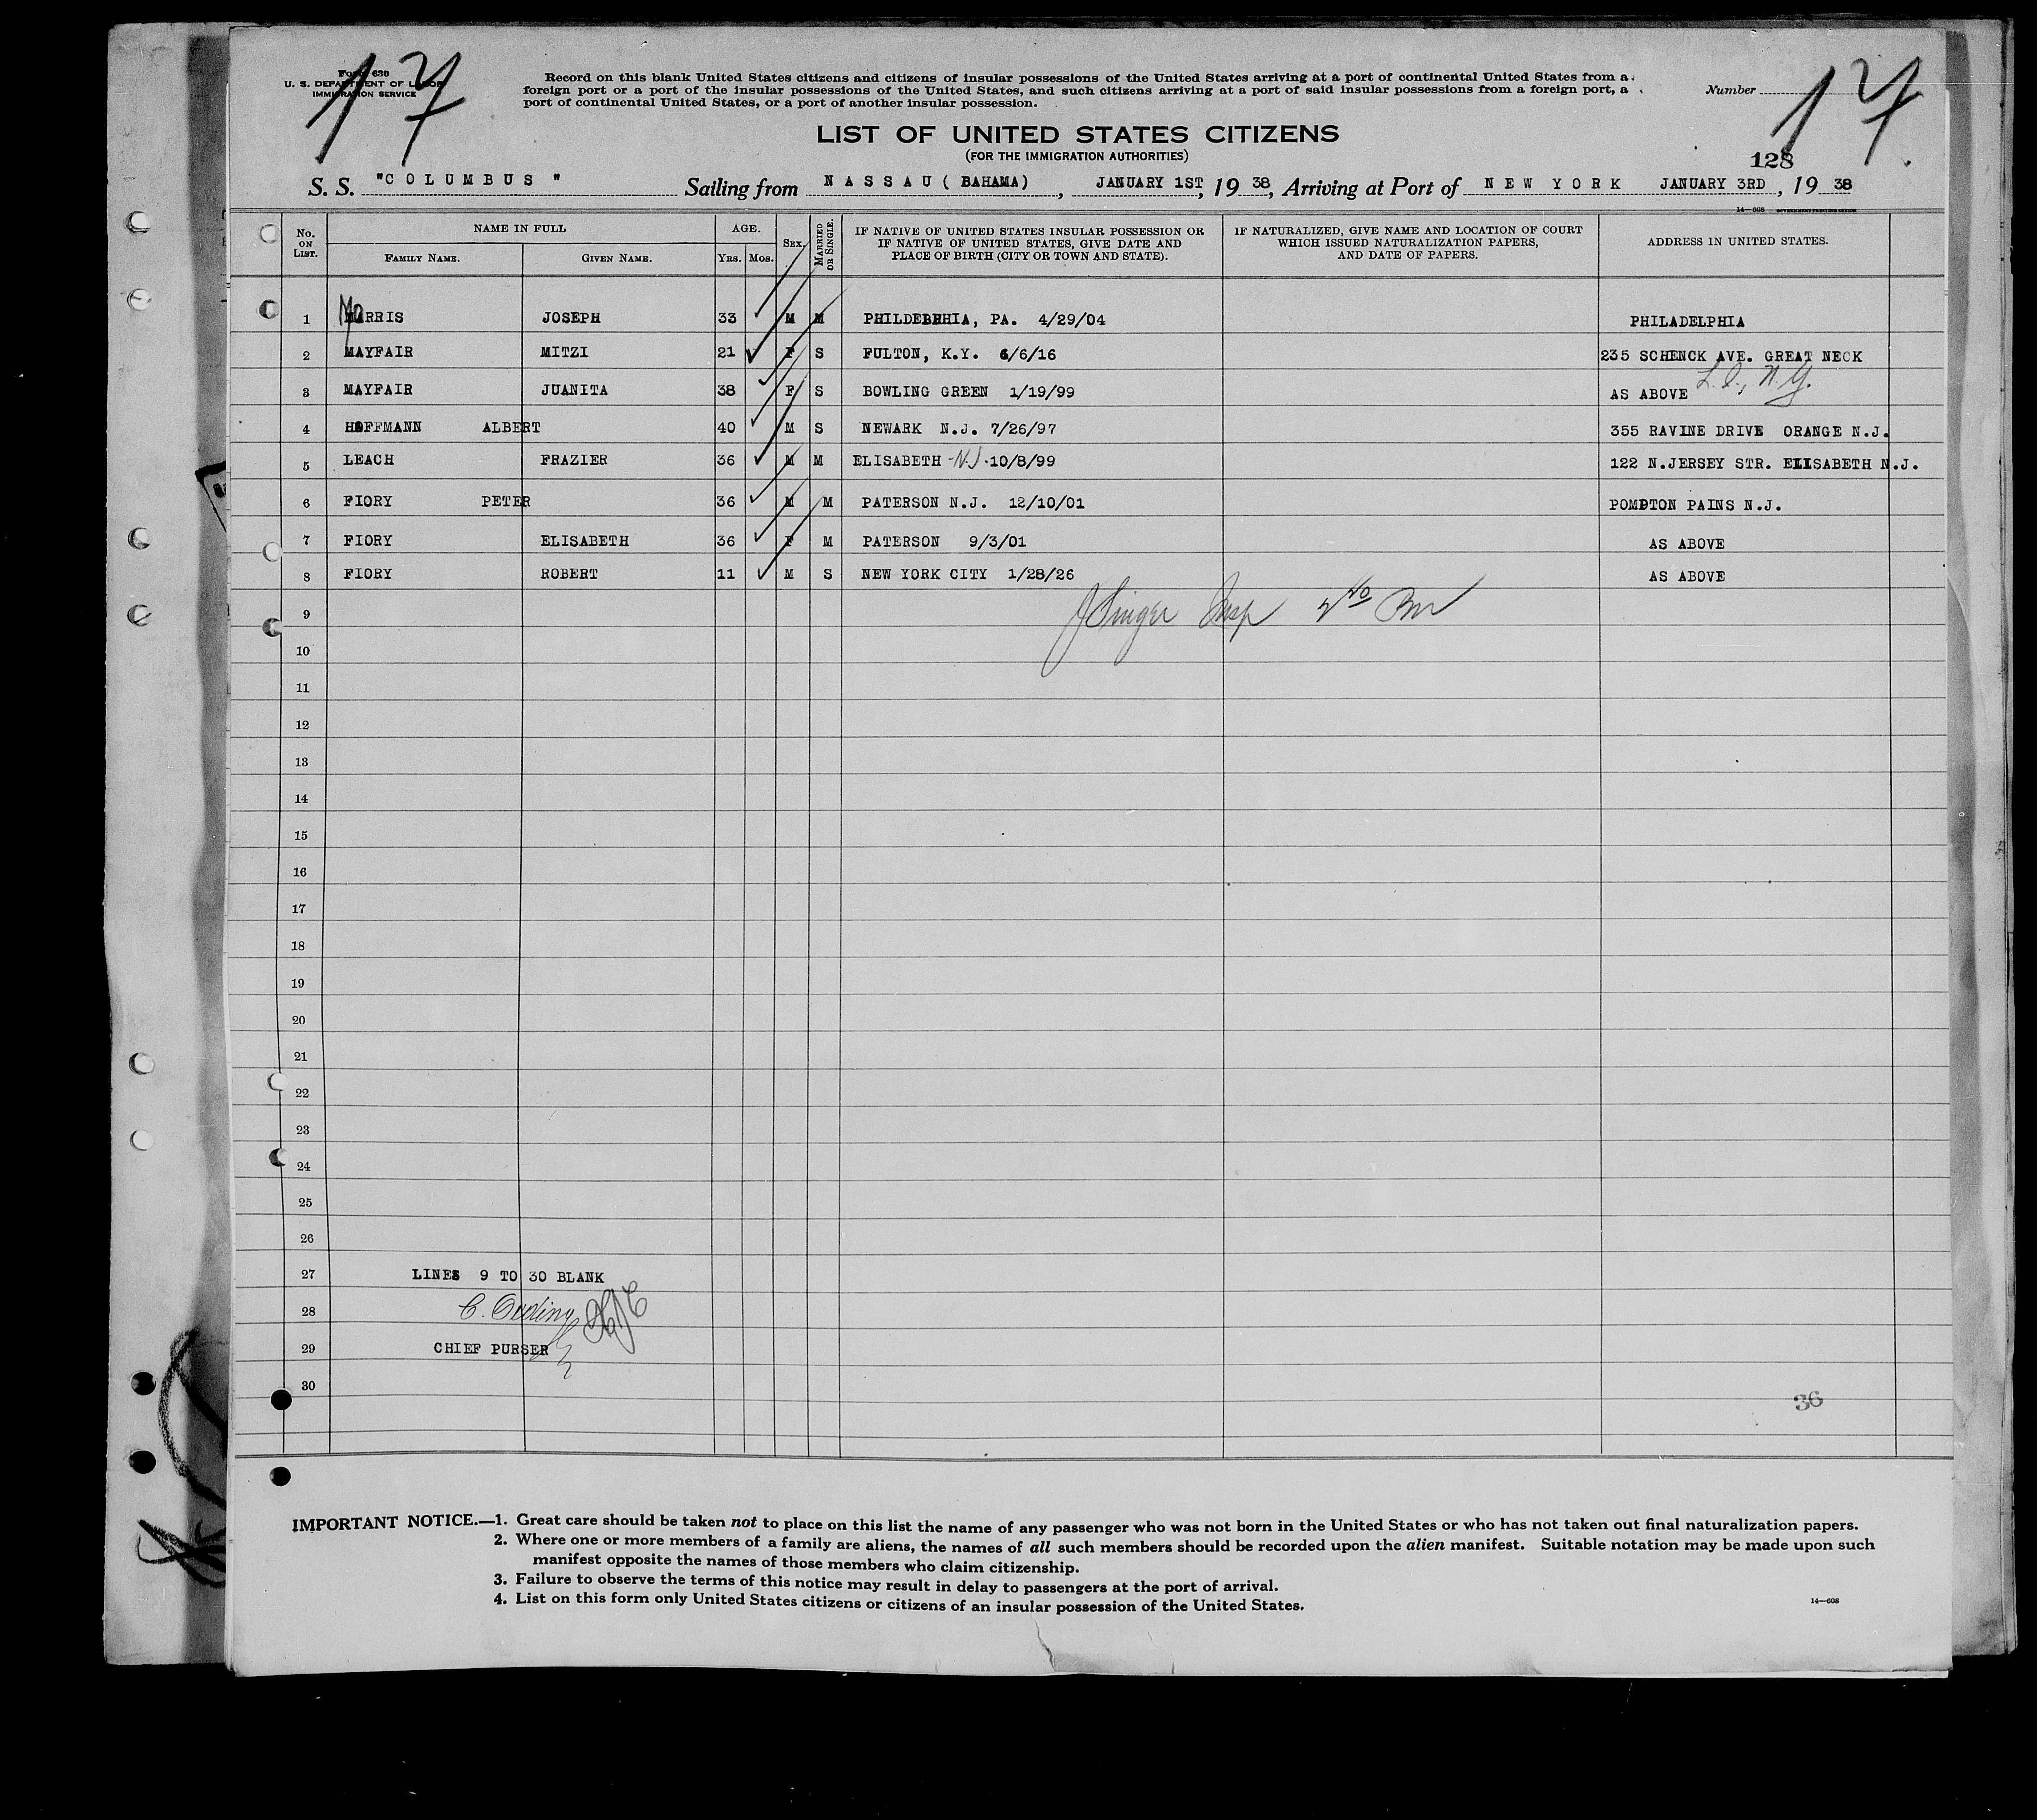 17
17
Form 630
U. S. DEPARTMENT OF LABOR
IMMIGRATION SERVICE
Record on this blank United States citizens and citizens of insular possessions of the United States arriving at a port of continental United States from a
foreign port or a port of the insular possessions of the United States, and such citizens arriving at a port of said insular possessions from a foreign port, a
port of continental United States, or a port of another insular possession.
Number
LIST OF UNITED STATES CITIZENS
(FOR THE IMMIGRATION AUTHORITIES)
128
S. S. "COLUMBUS" Sailing from NASSAU ( BAHAMA) , JANUARY 1ST, 19 38, Arriving at Port of NEW YORK JANUARY 3RD , 19 38
14—608 GOVERNMENT PRINTING OFFICE
No. ON LIST. NAME IN FULL AGE. SEX. MARRIED OR SINGLE. IF NATIVE OF UNITED STATES INSULAR POSSESSION OR IF NATIVE OF UNITED STATES, GIVE DATE AND PLACE OF BIRTH (CITY OR TOWN AND STATE). IF NATURALIZED, GIVE NAME AND LOCATION OF COURT WHICH ISSUED NATURALIZATION PAPERS, AND DATE OF PAPERS. ADDRESS IN UNITED STATES.
FAMILY NAME. GIVEN NAME. YRS. MOS.
1 MORRIS JOSEPH 33 M M PHILDEPHIA, PA. 4/29/04 PHILADELPHIA
2 MAYFAIR MITZI 21 F S FULTON, K.Y. 6/6/16 235 SCHENCK AVE. GREAT NECK
L.I., N.Y.
3 MAYFAIR JUANITA 38 F S BOWLING GREEN 1/19/99 AS ABOVE
4 HOFFMANN ALBERT 40 M S NEWARK N.J. 7/26/97 355 RAVINE DRIVE ORANGE N.J.
5 LEACH FRAZIER 36 M M ELISABETH -N.J.- 10/8/99 122 N.JERSEY STR. ELISABETH N.J.
6 FIORY PETER 36 M M PATERSON N.J. 12/10/01 POMPTON PAINS N.J.
7 FIORY ELISABETH 36 F M PATERSON 9/3/01 AS ABOVE
8 FIORY ROBERT 11 M S NEW YORK CITY 1/28/26 AS ABOVE
9 J Singer Insp
10
11
12
13
14
15
16
17
18
19
20
21
22
23
24
25
26
27 LINES 9 TO 30 BLANK
28
29 CHIEF PURSER
30
36
IMPORTANT NOTICE.—1. Great care should be taken not to place on this list the name of any passenger who was not born in the United States or who has not taken out final naturalization papers.
2. Where one or more members of a family are aliens, the names of all such members should be recorded upon the alien manifest. Suitable notation may be made upon such
manifest opposite the names of those members who claim citizenship.
3. Failure to observe the terms of this notice may result in delay to passengers at the port of arrival.
4. List on this form only United States citizens or citizens of an insular possession of the United States.
14—608